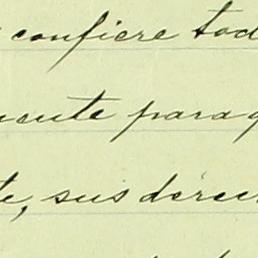 confiere tod
ente para q
te, sus derec